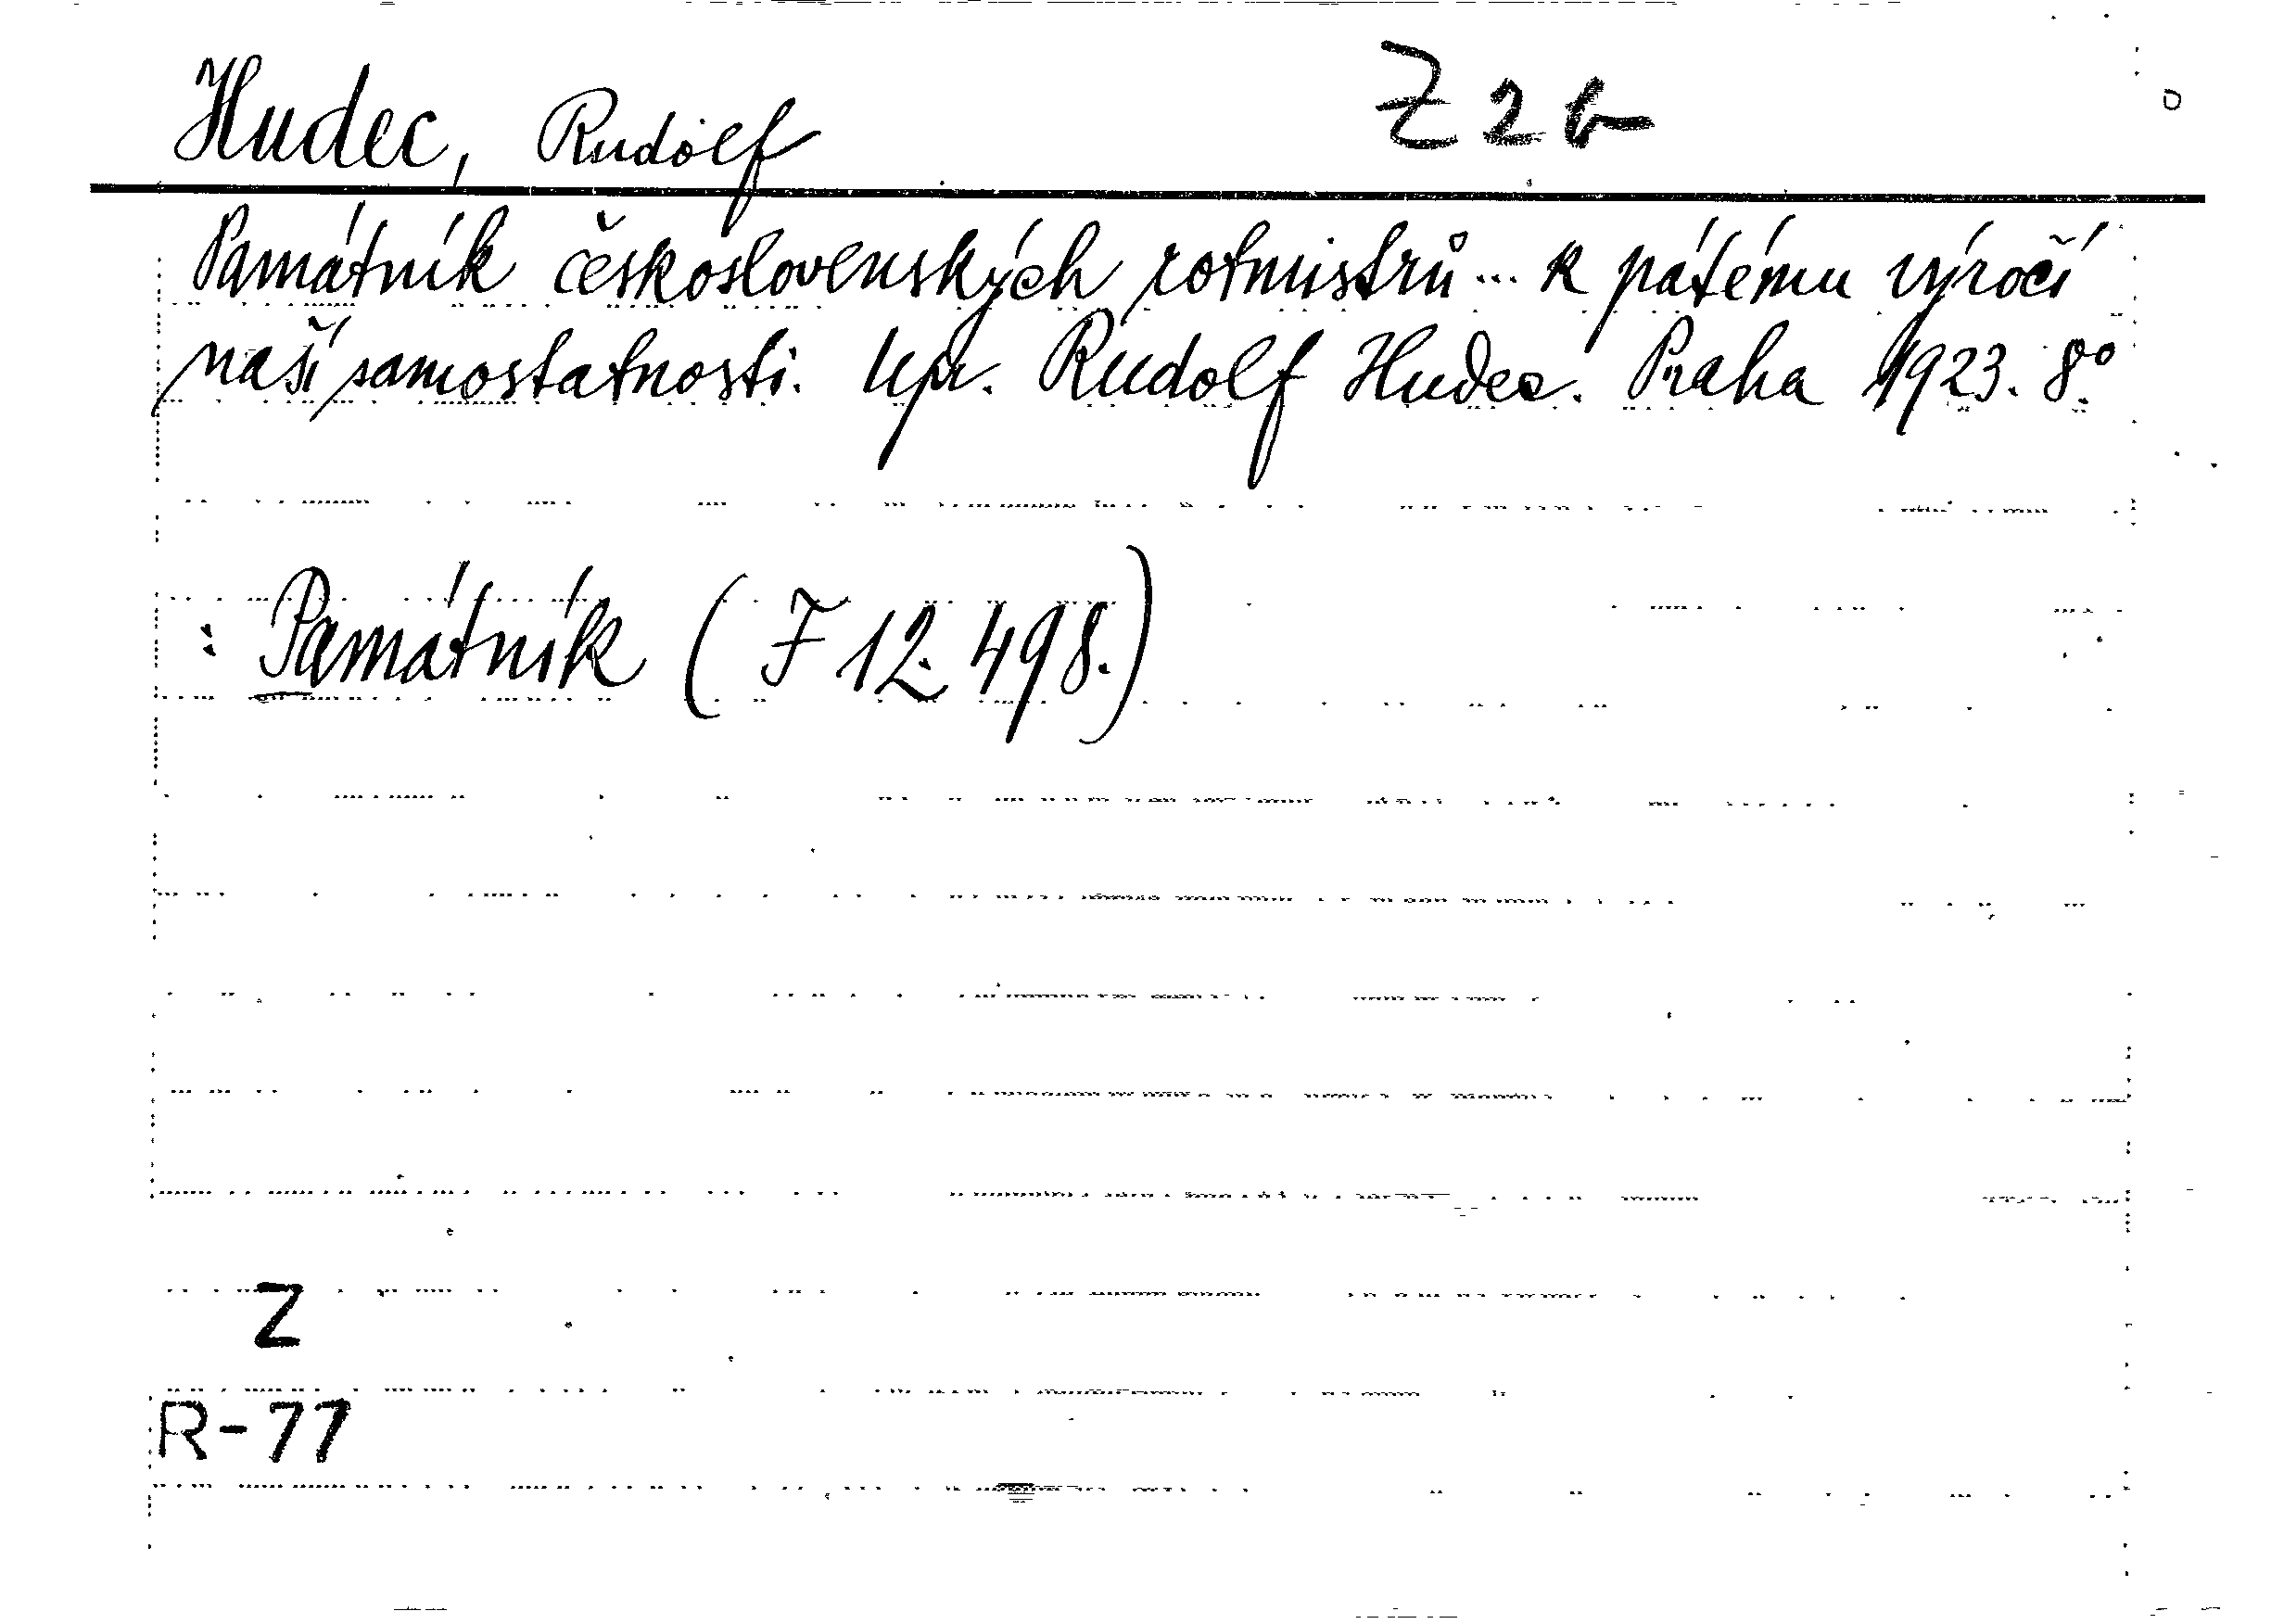 Hudec, Rudolf Z 2 b
Památník československých rotmistrů... k pátému výročí
naší samostatnosti. Upr. Rudolf Hudec. Praha 1923. 8°.
: Památník (F 12.498.)
Z
R-77